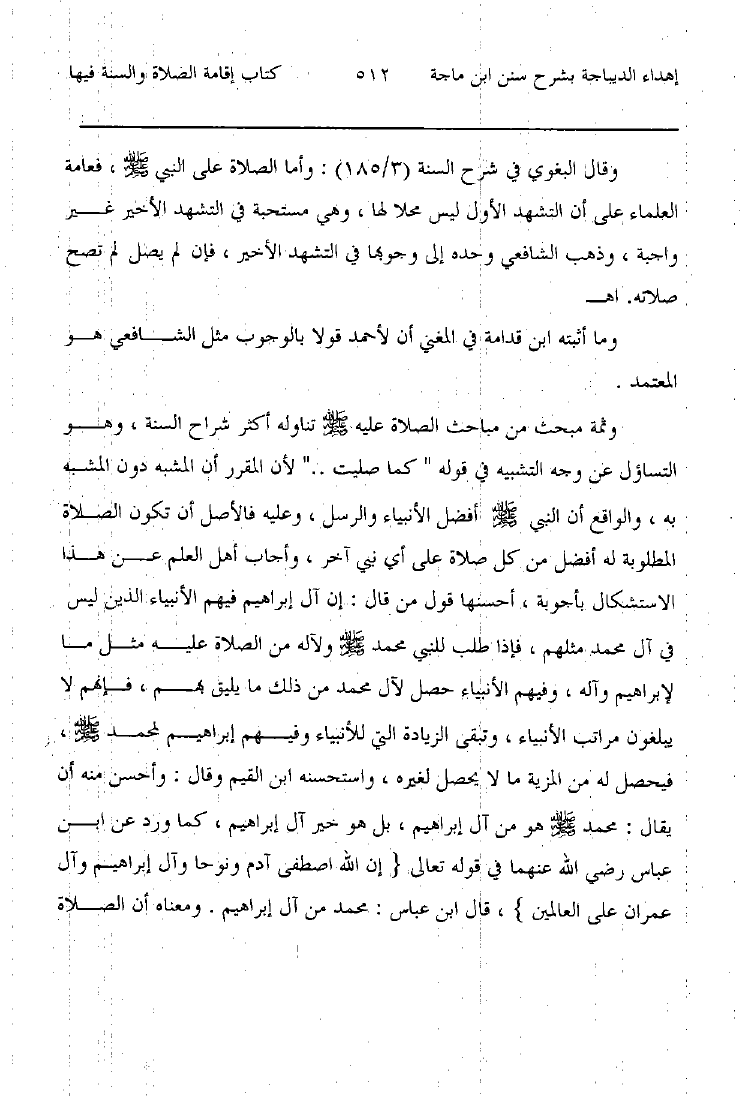 إهداء الديباجة بشرح سنن ابن ماجة ٥١٢ كتاب إقامة الصلاة والسنة فيها
وقال البغوي في شرح السنة (١٨٥/٣) : وأما الصلاة على النبي ﷺ ، فعامة
العلماء على أن التشهد الأول ليس محلا لها ، وهي مستحبة في التشهد الأخير غير
واجبة ، وذهب الشافعي وحده إلى وجوبها في التشهد الأخير ، فإن لم يصل لم تصح
صلاته. اهـ
وما أثبته ابن قدامة في المغني أن لأحمد قولا بالوجوب مثل الشافعي هو
المعتمد .
وثمة مبحث من مباحث الصلاة عليه ﷺ تناوله أكثر شراح السنة ، وهو
التساؤل عن وجه التشبيه في قوله " كما صليت .." لأن المقرر أن المشبه دون المشبه
به ، والواقع أن النبي ﷺ أفضل الأنبياء والرسل ، وعليه فالأصل أن تكون الصلاة
المطلوبة له أفضل من كل صلاة على أي نبي آخر ، وأجاب أهل العلم عن هذا
الاستشكال بأجوبة ، أحسنها قول من قال : إن آل إبراهيم فيهم الأنبياء الذين ليس
في آل محمد مثلهم ، فإذا طلب للنبي محمد ﷺ ولآله من الصلاة عليه مثل ما
لإبراهيم وآله ، وفيهم الأنبياء حصل لآل محمد من ذلك ما يليق بهم ، فإنهم لا
يبلغون مراتب الأنبياء ، وتبقى الزيادة التي للأنبياء وفيهم إبراهيم لمحمد ﷺ ،
فيحصل له من المزية ما لا يحصل لغيره ، واستحسنه ابن القيم وقال : وأحسن منه أن
يقال : محمد ﷺ هو من آل إبراهيم ، بل هو خير آل إبراهيم ، كما ورد عن ابن
عباس رضي الله عنهما في قوله تعالى { إن الله اصطفى آدم ونوحا وآل إبراهيم وآل
عمران على العالمين } ، قال ابن عباس : محمد من آل إبراهيم . ومعناه أن الصلاة